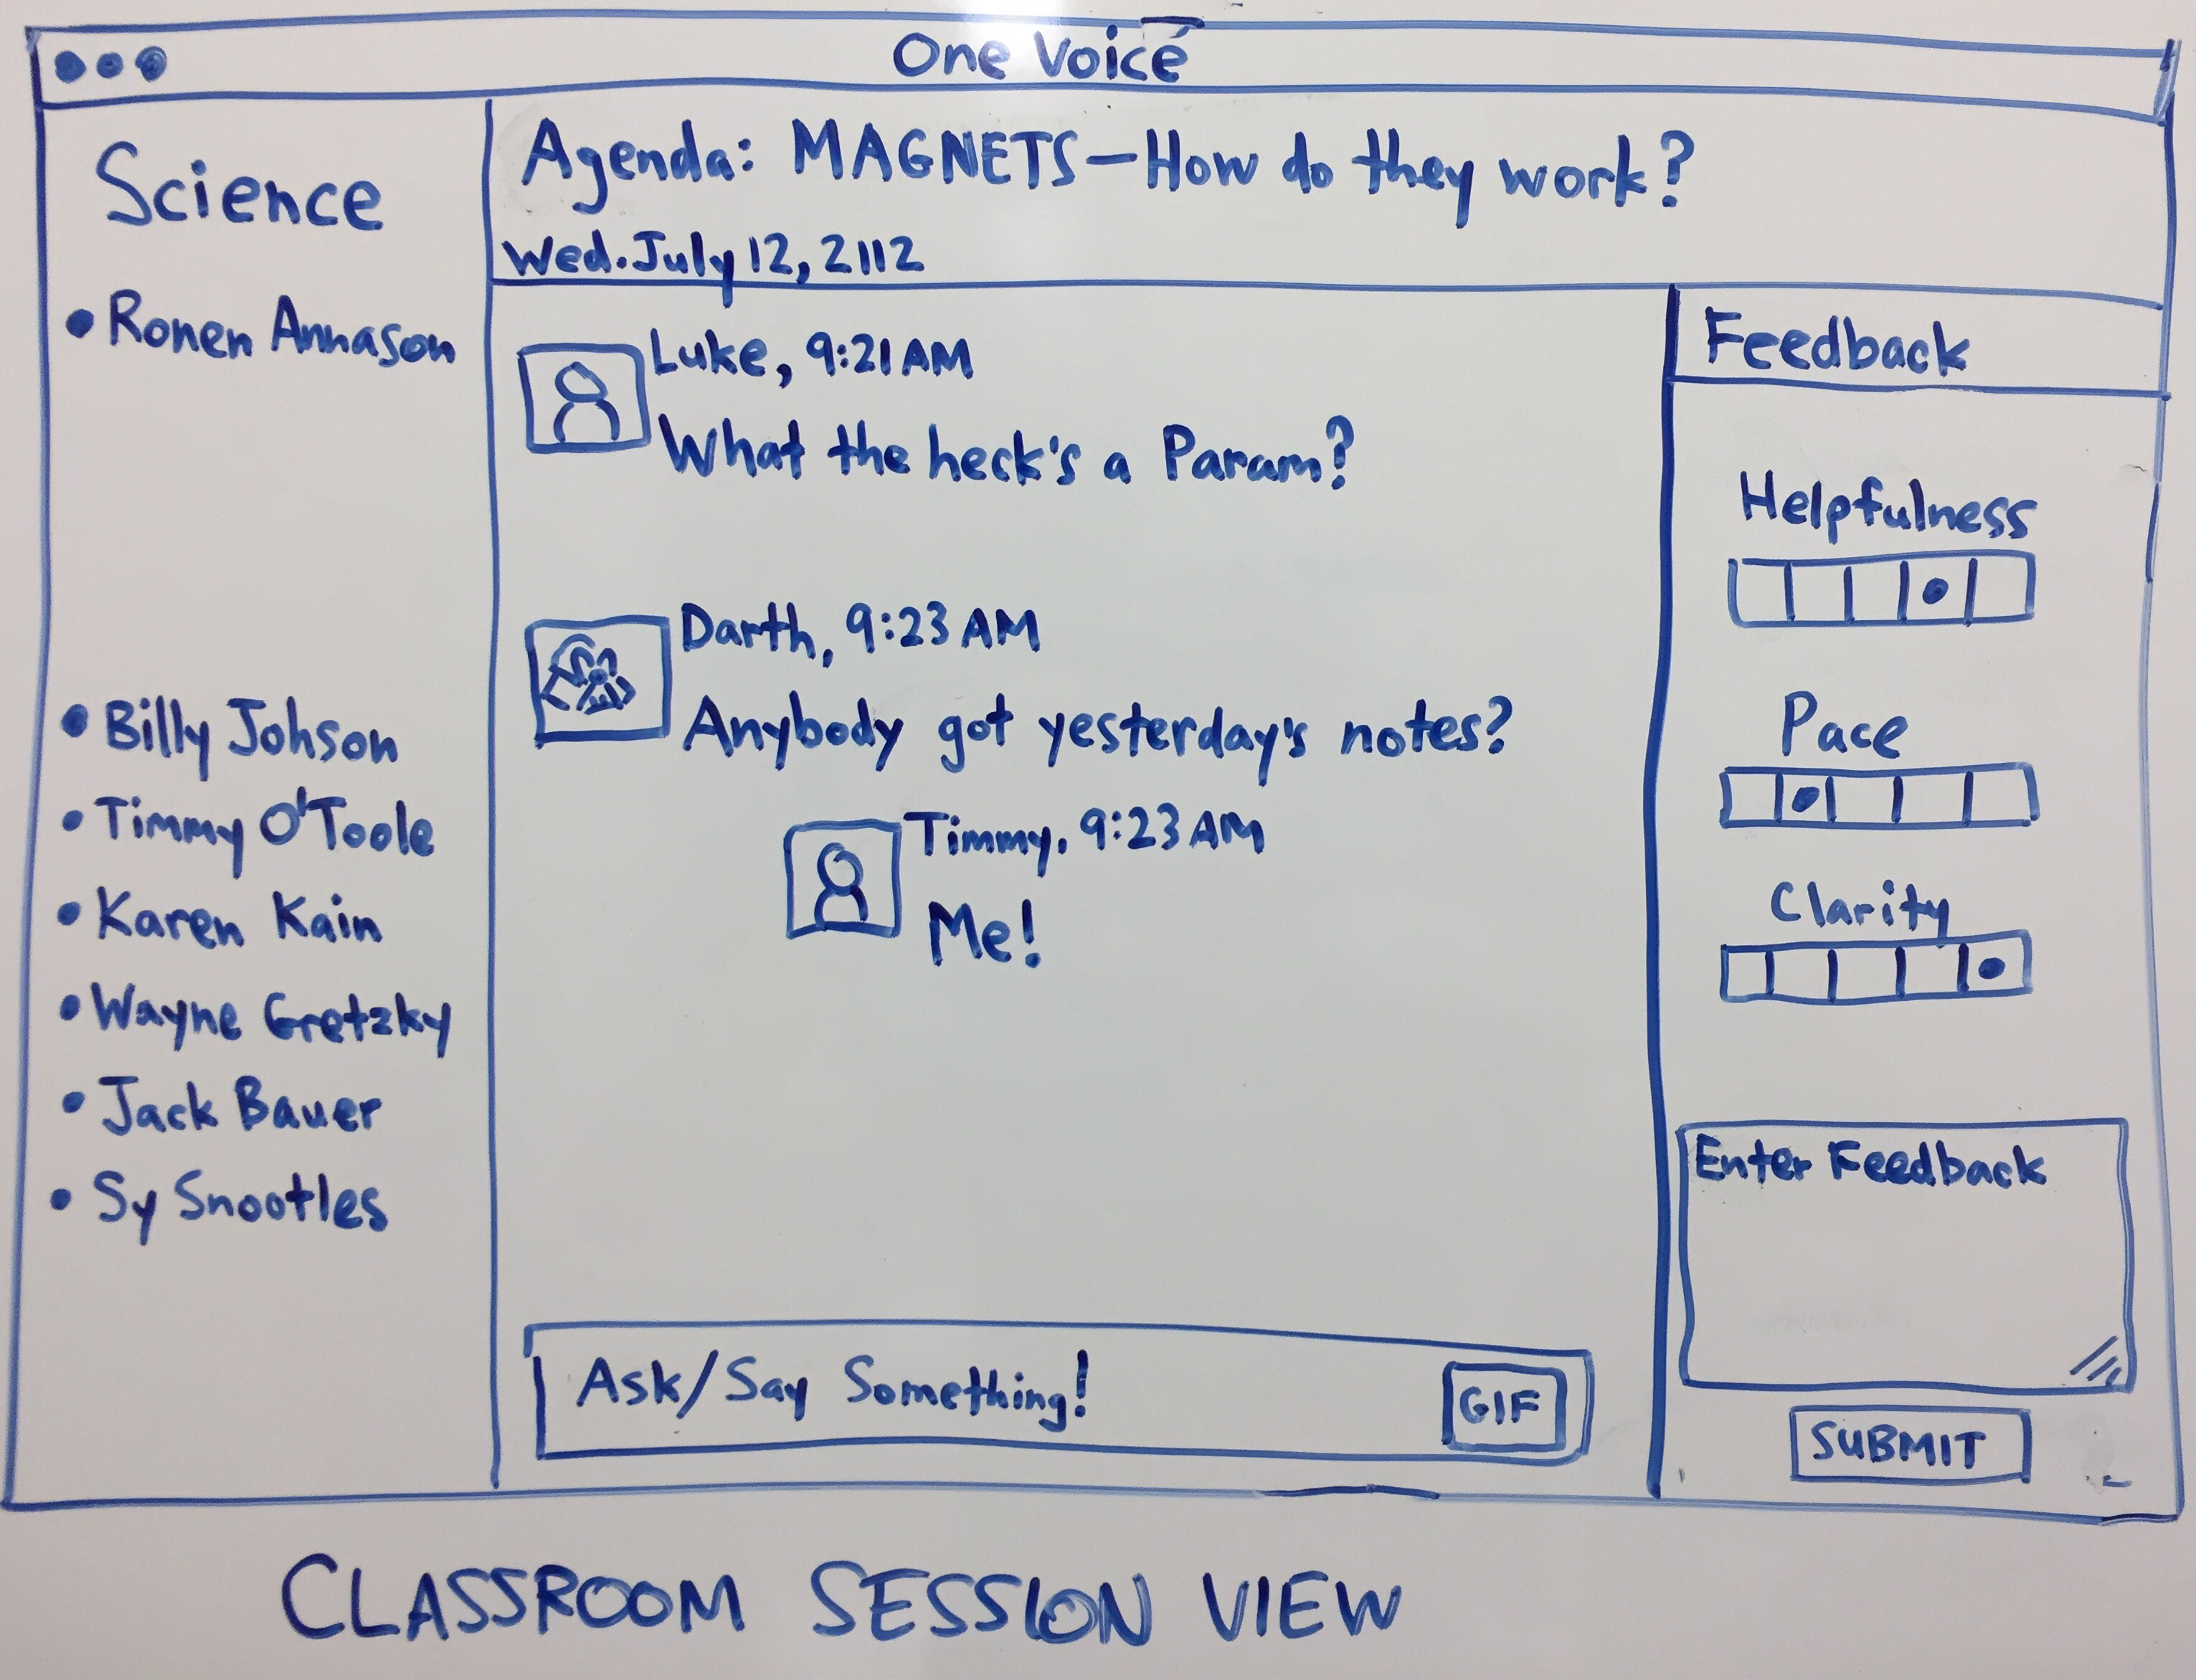 One Voice
Science
• Ronen Annason
• Billy Johson
• Timmy O'Toole
• Karen Kain
• Wayne Gretzky
• Jack Bauer
• Sy Snootles
Agenda: MAGNETS—How do they work?
Wed. July 12, 2112
Luke, 9:21 AM
What the heck's a Param?
Darth, 9:23 AM
Anybody got yesterday's notes?
Timmy, 9:23 AM
Me!
Ask/Say Something!
GIF
Feedback
Helpfulness
Pace
Clarity
Enter Feedback
SUBMIT
CLASSROOM SESSION VIEW